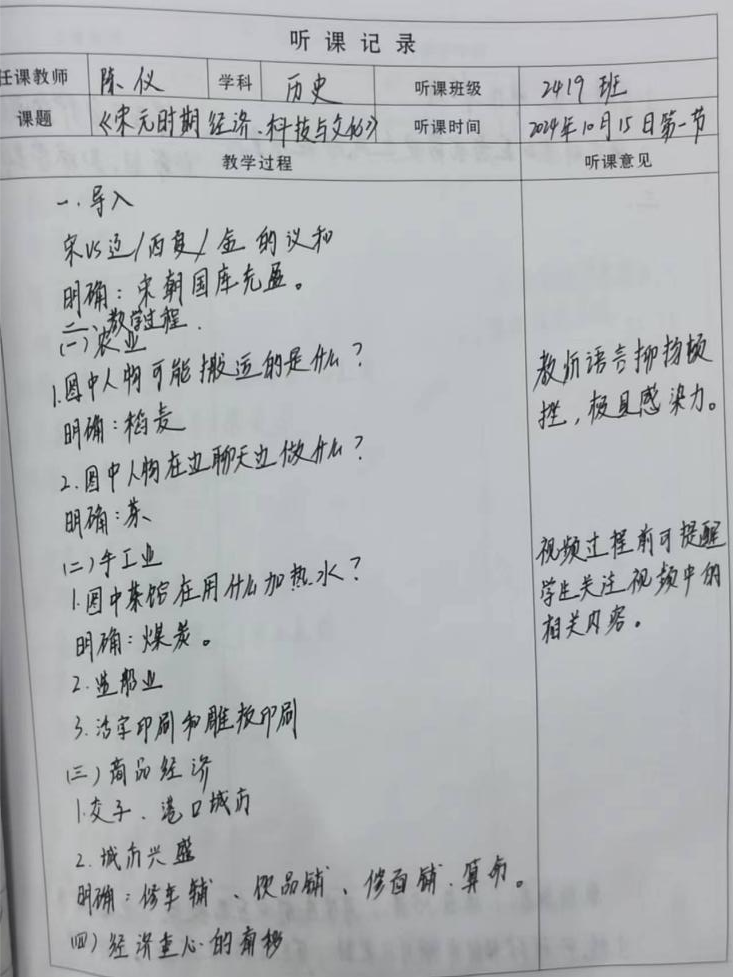 听课记录
任课教师 陈仪 学科 历史 听课班级 2419班
课题 《宋元时期经济、科技与文化》 听课时间 2024年10月15日第一节
教学过程 听课意见
一.导入
宋VS辽/西夏/金的议和
明确：宋朝国库充盈。
二、教学过程.
(一)农业
1.图中人物可能搬运的是什么？
明确：稻麦
2.图中人物在边聊天边做什么？
明确：茶、
(二)手工业
1.图中茶馆在用什么加热水？
明确：煤炭。
2.造船业
3.活字印刷和雕板印刷
(三)商品经济
1.交子、港口城市
2.城市兴盛
明确：修车铺、饮品铺、修面铺、算命。
四)经济重心的南移
教师语言抑扬顿
挫，极具感染力。
视频过程前可提醒
学生关注视频中的
相关内容。